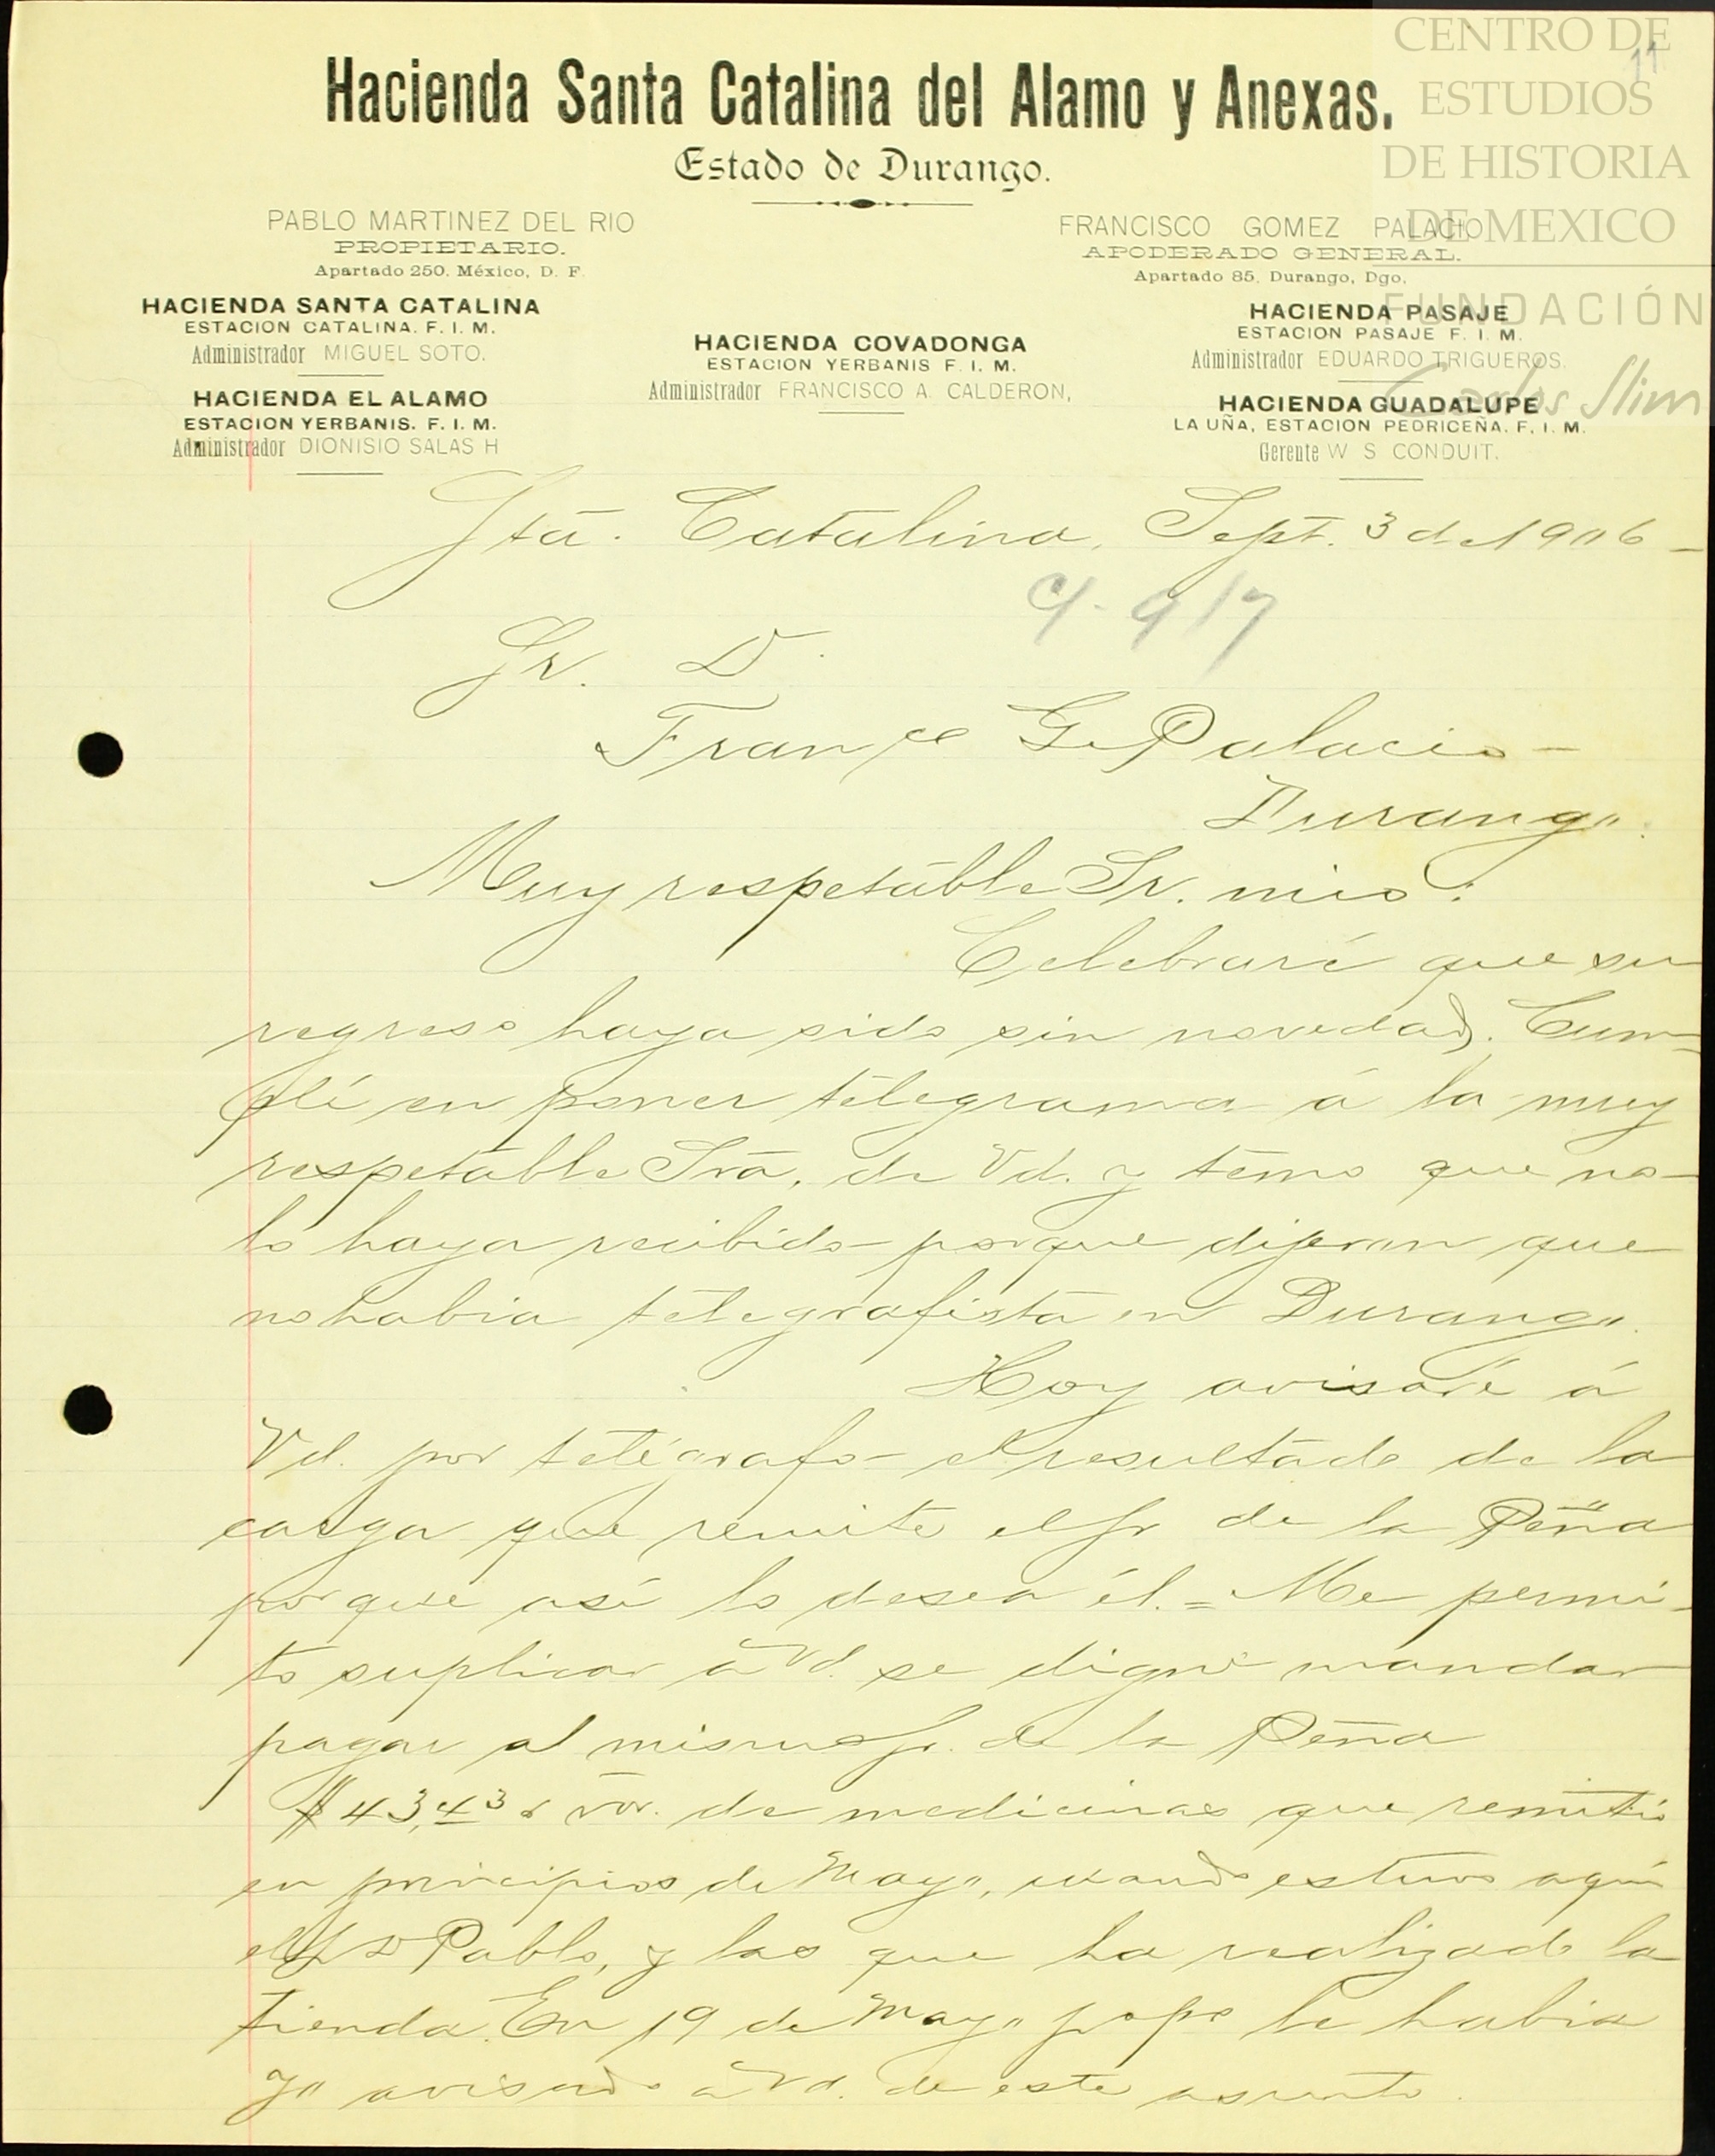 CENTRO DE
ESTUDIOS
DE HISTORIA
DE MEXICO
FUNDACIÓN
Carlos Slim
11
Hacienda Santa Catalina del Alamo y Anexas.
Estado de Durango.
PABLO MARTINEZ DEL RIO
PROPIETARIO.
Apartado 250. México, D. F.
FRANCISCO GOMEZ PALACIO
APODERADO GENERAL.
Apartado 85, Durango, Dgo.
HACIENDA SANTA CATALINA
ESTACION CATALINA. F. I. M.
Administrador MIGUEL SOTO.
HACIENDA EL ALAMO
ESTACION YERBANIS. F. I. M.
Administrador DIONISIO SALAS H
HACIENDA COVADONGA
ESTACION YERBANIS F. I. M.
Administrador FRANCISCO A. CALDERON,
HACIENDA PASAJE
ESTACION PASAJE F. I. M.
Administrador EDUARDO TRIGUEROS.
HACIENDA GUADALUPE
LA UÑA, ESTACION PEDRICEÑA. F. I. M.
Gerente W S CONDUIT.
Sta. Catalina, Sept. 3 de 1906-
9/7
Sr. D.
Franco G. Palacio-
Durango.
Muy respetable Sr. mio:
Celebraré que su
regreso haya sido sin novedad. Cum-
plí en poner telegrama á la muy
respetable Sra. de Vd. y temo que no-
lo haya recibido porque dijeron que
no habia telegrafista en Durango.
Hoy avisaré á
Vd. por telégrafo el resultado de la
carga que remite el Sr de la Peña
porque así lo desea él.= Me permi-
to suplicar á Vd. se digne mandar
pagar al mismo Sr. de la Peña
$43,43 vor. de medicinas que remitió
en principios de Mayo, cuando estuvo aquí
el Sr D Pablo, y las que ha realizado la
tienda. En 19 de Mayo ppo le habia
ya avisado á Vd. de este asunto.